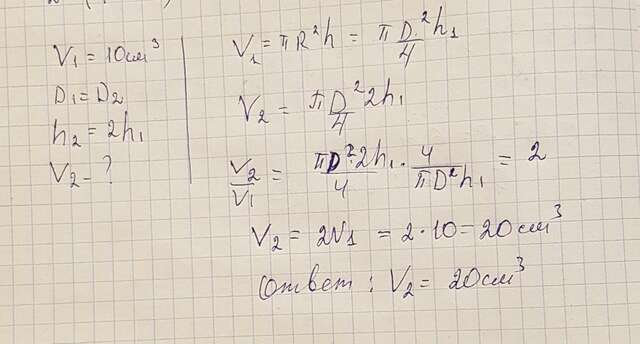 V₁ = 10 см³
D₁ = D₂
h₂ = 2h₁
V₂ - ?
V₁ = πR²h = πD²/4 h₁
V₂ = πD²/4 2h₁
V₂/V₁ = πD²·2h₁/4 · 4/πD²h₁ = 2
V₂ = 2V₁ = 2·10 = 20 см³
Ответ : V₂ = 20 см³